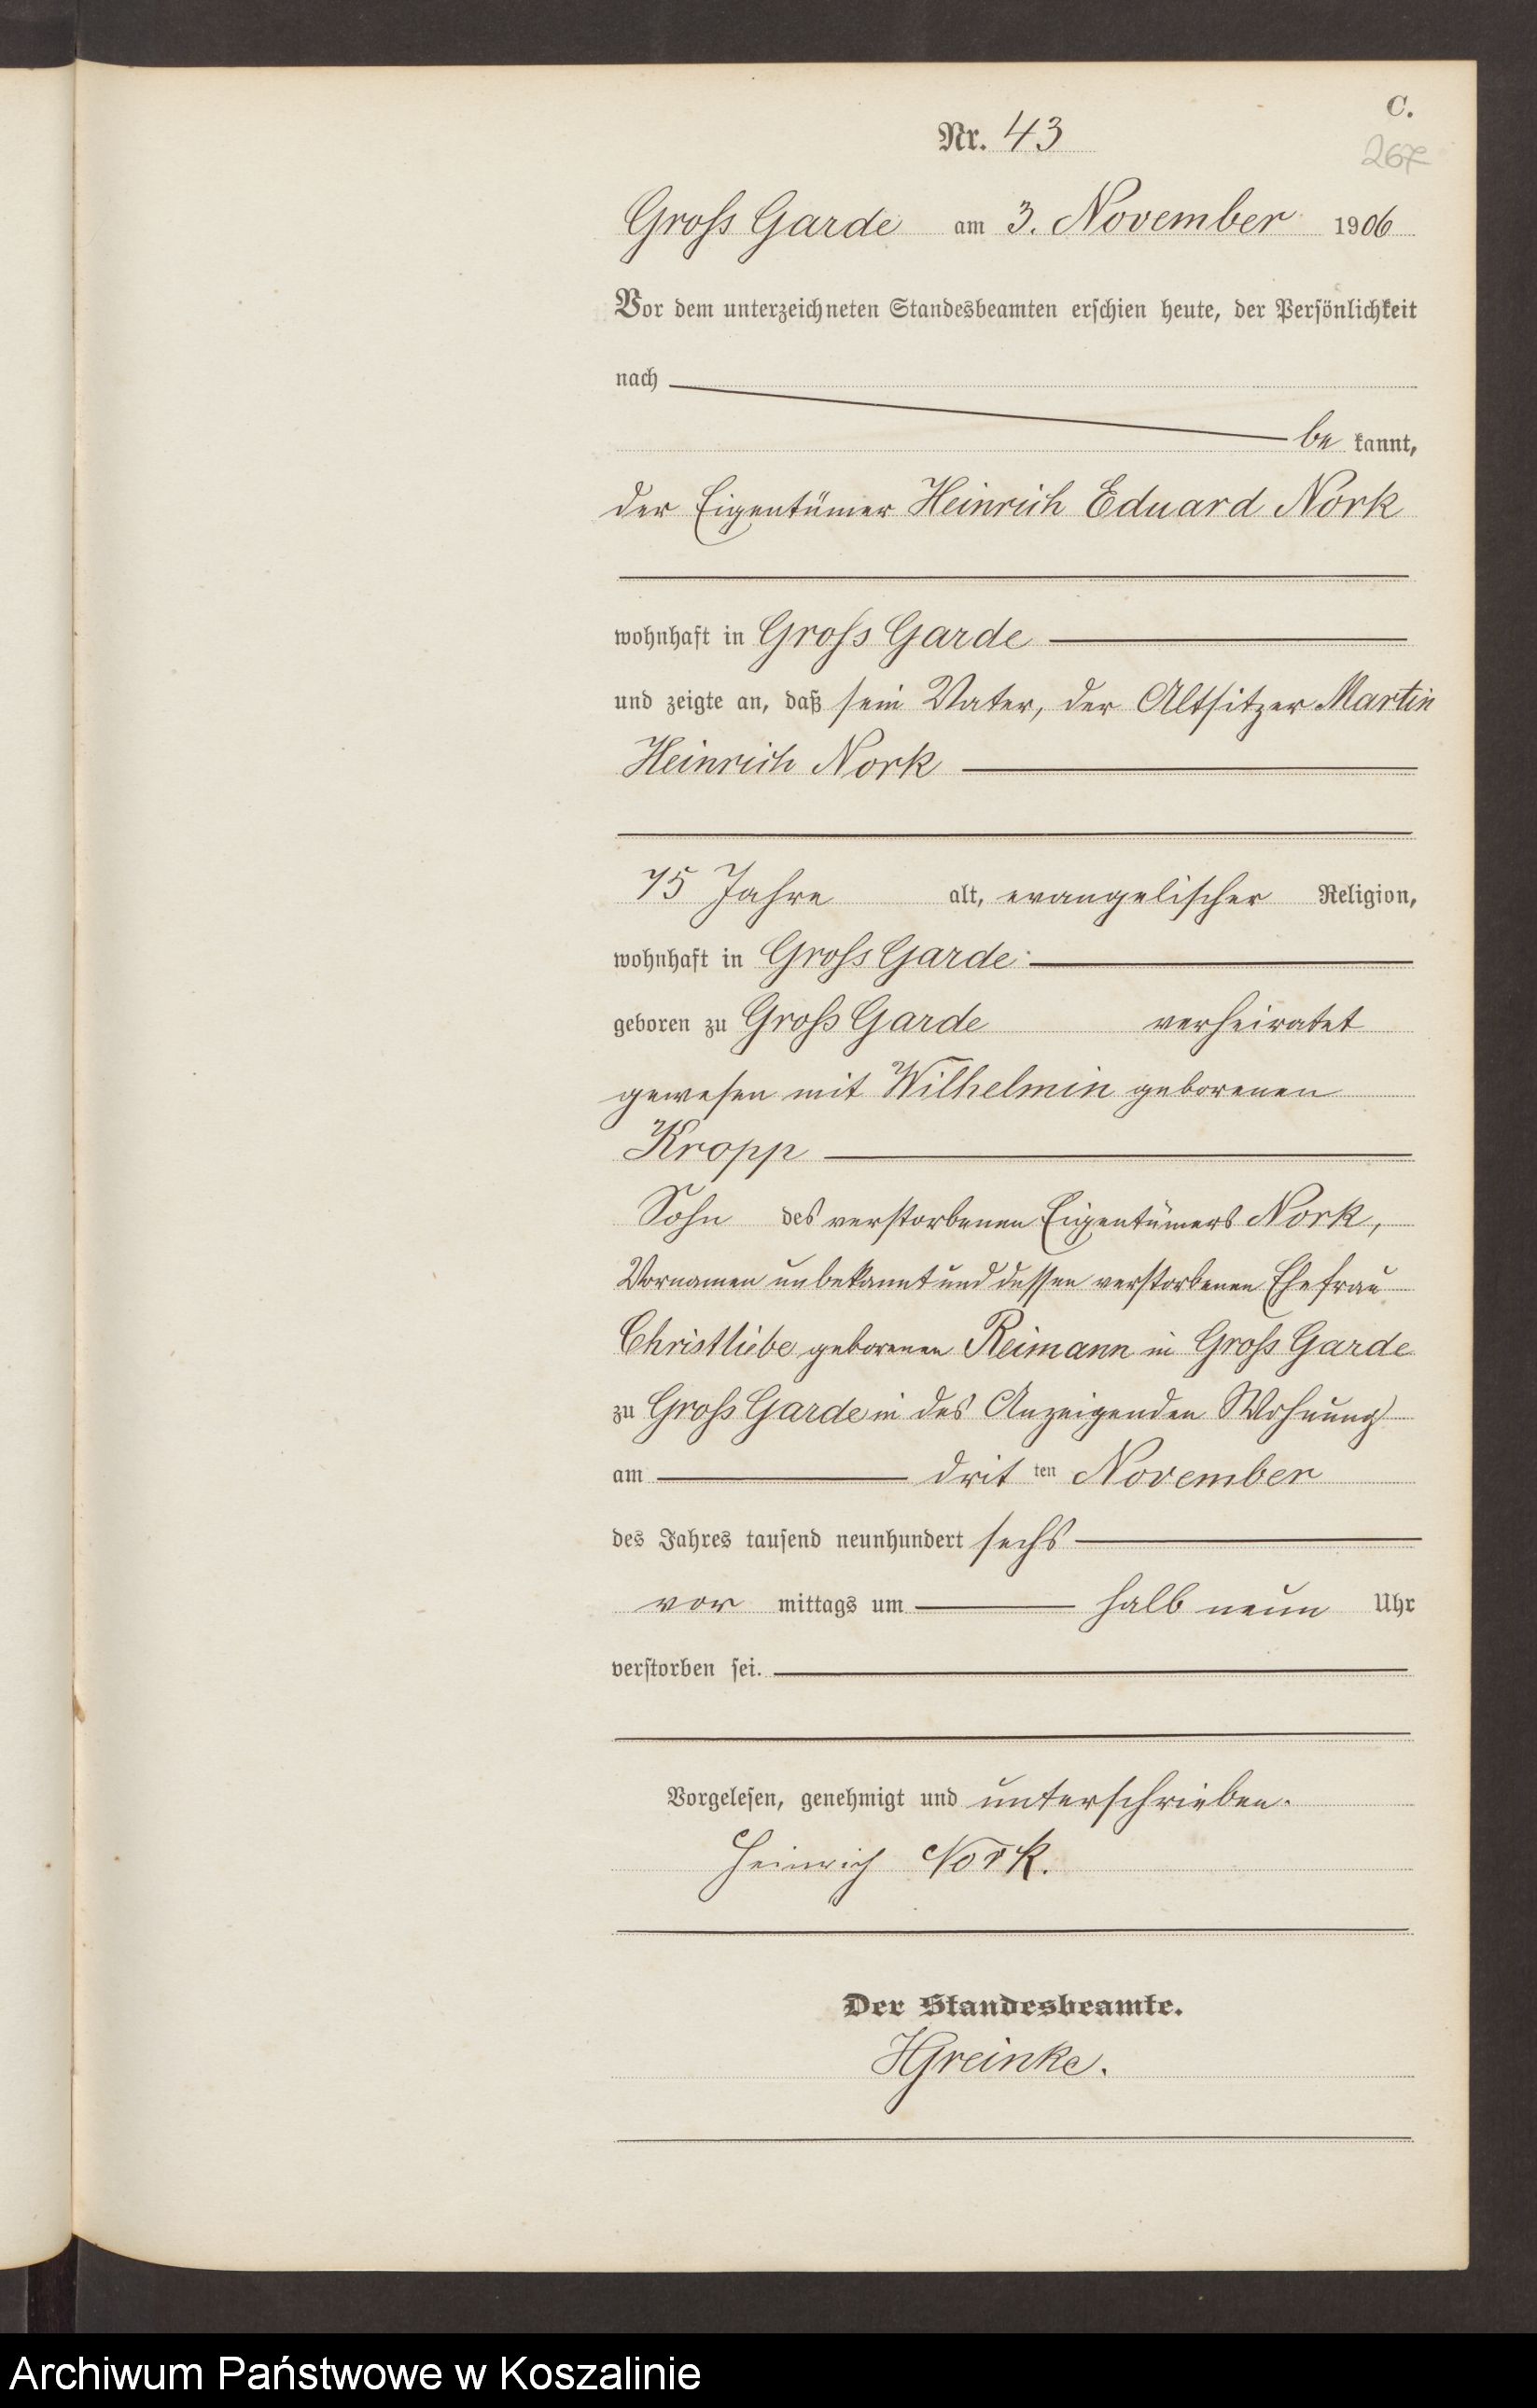 C.
Nr. 43
267
Groß Garde am 3. November 1906
Vor dem unterzeichneten Standesbeamten erschien heute, der Persönlichkeit
nach
be kannt,
der Eigentümer Heinrich Eduard Nork
wohnhaft in Groß Garde
und zeigte an, daß sein Vater, der Altsitzer Martin
Heinrich Nork
75 Jahre alt, evangelischer Religion,
wohnhaft in Groß Garde
geboren zu Groß Garde verheiratet
gewesen mit Wilhelmin geborenen
Kropp
Sohn des verstorbenen Eigentümers Nork,
Vornamen unbekannt und dessen verstorbenen Ehefrau
Christliebe geborenen Reimann in Groß Garde
zu Groß Garde in des Anzeigenden Wohnung
am dritten November
des Jahres tausend neunhundert sechs
vor mittags um halb neun Uhr
verstorben sei.
Vorgelesen, genehmigt und unterschrieben.
Heinrich Nork.
Der Standesbeamte.
HGreinke.
Archiwum Państwowe w Koszalinie